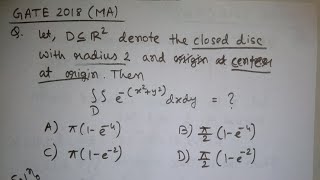 GATE 2018 (MA)
Q. Let, D⊆ℝ² denote the closed disc
with radius 2 and origin at center
at origin. Then
∬_D e^{-(x²+y²)} dxdy = ?
A) π(1-e^{-4}) B) π/2 (1-e^{-4})
C) π(1-e^{-2}) D) π/2 (1-e^{-2})